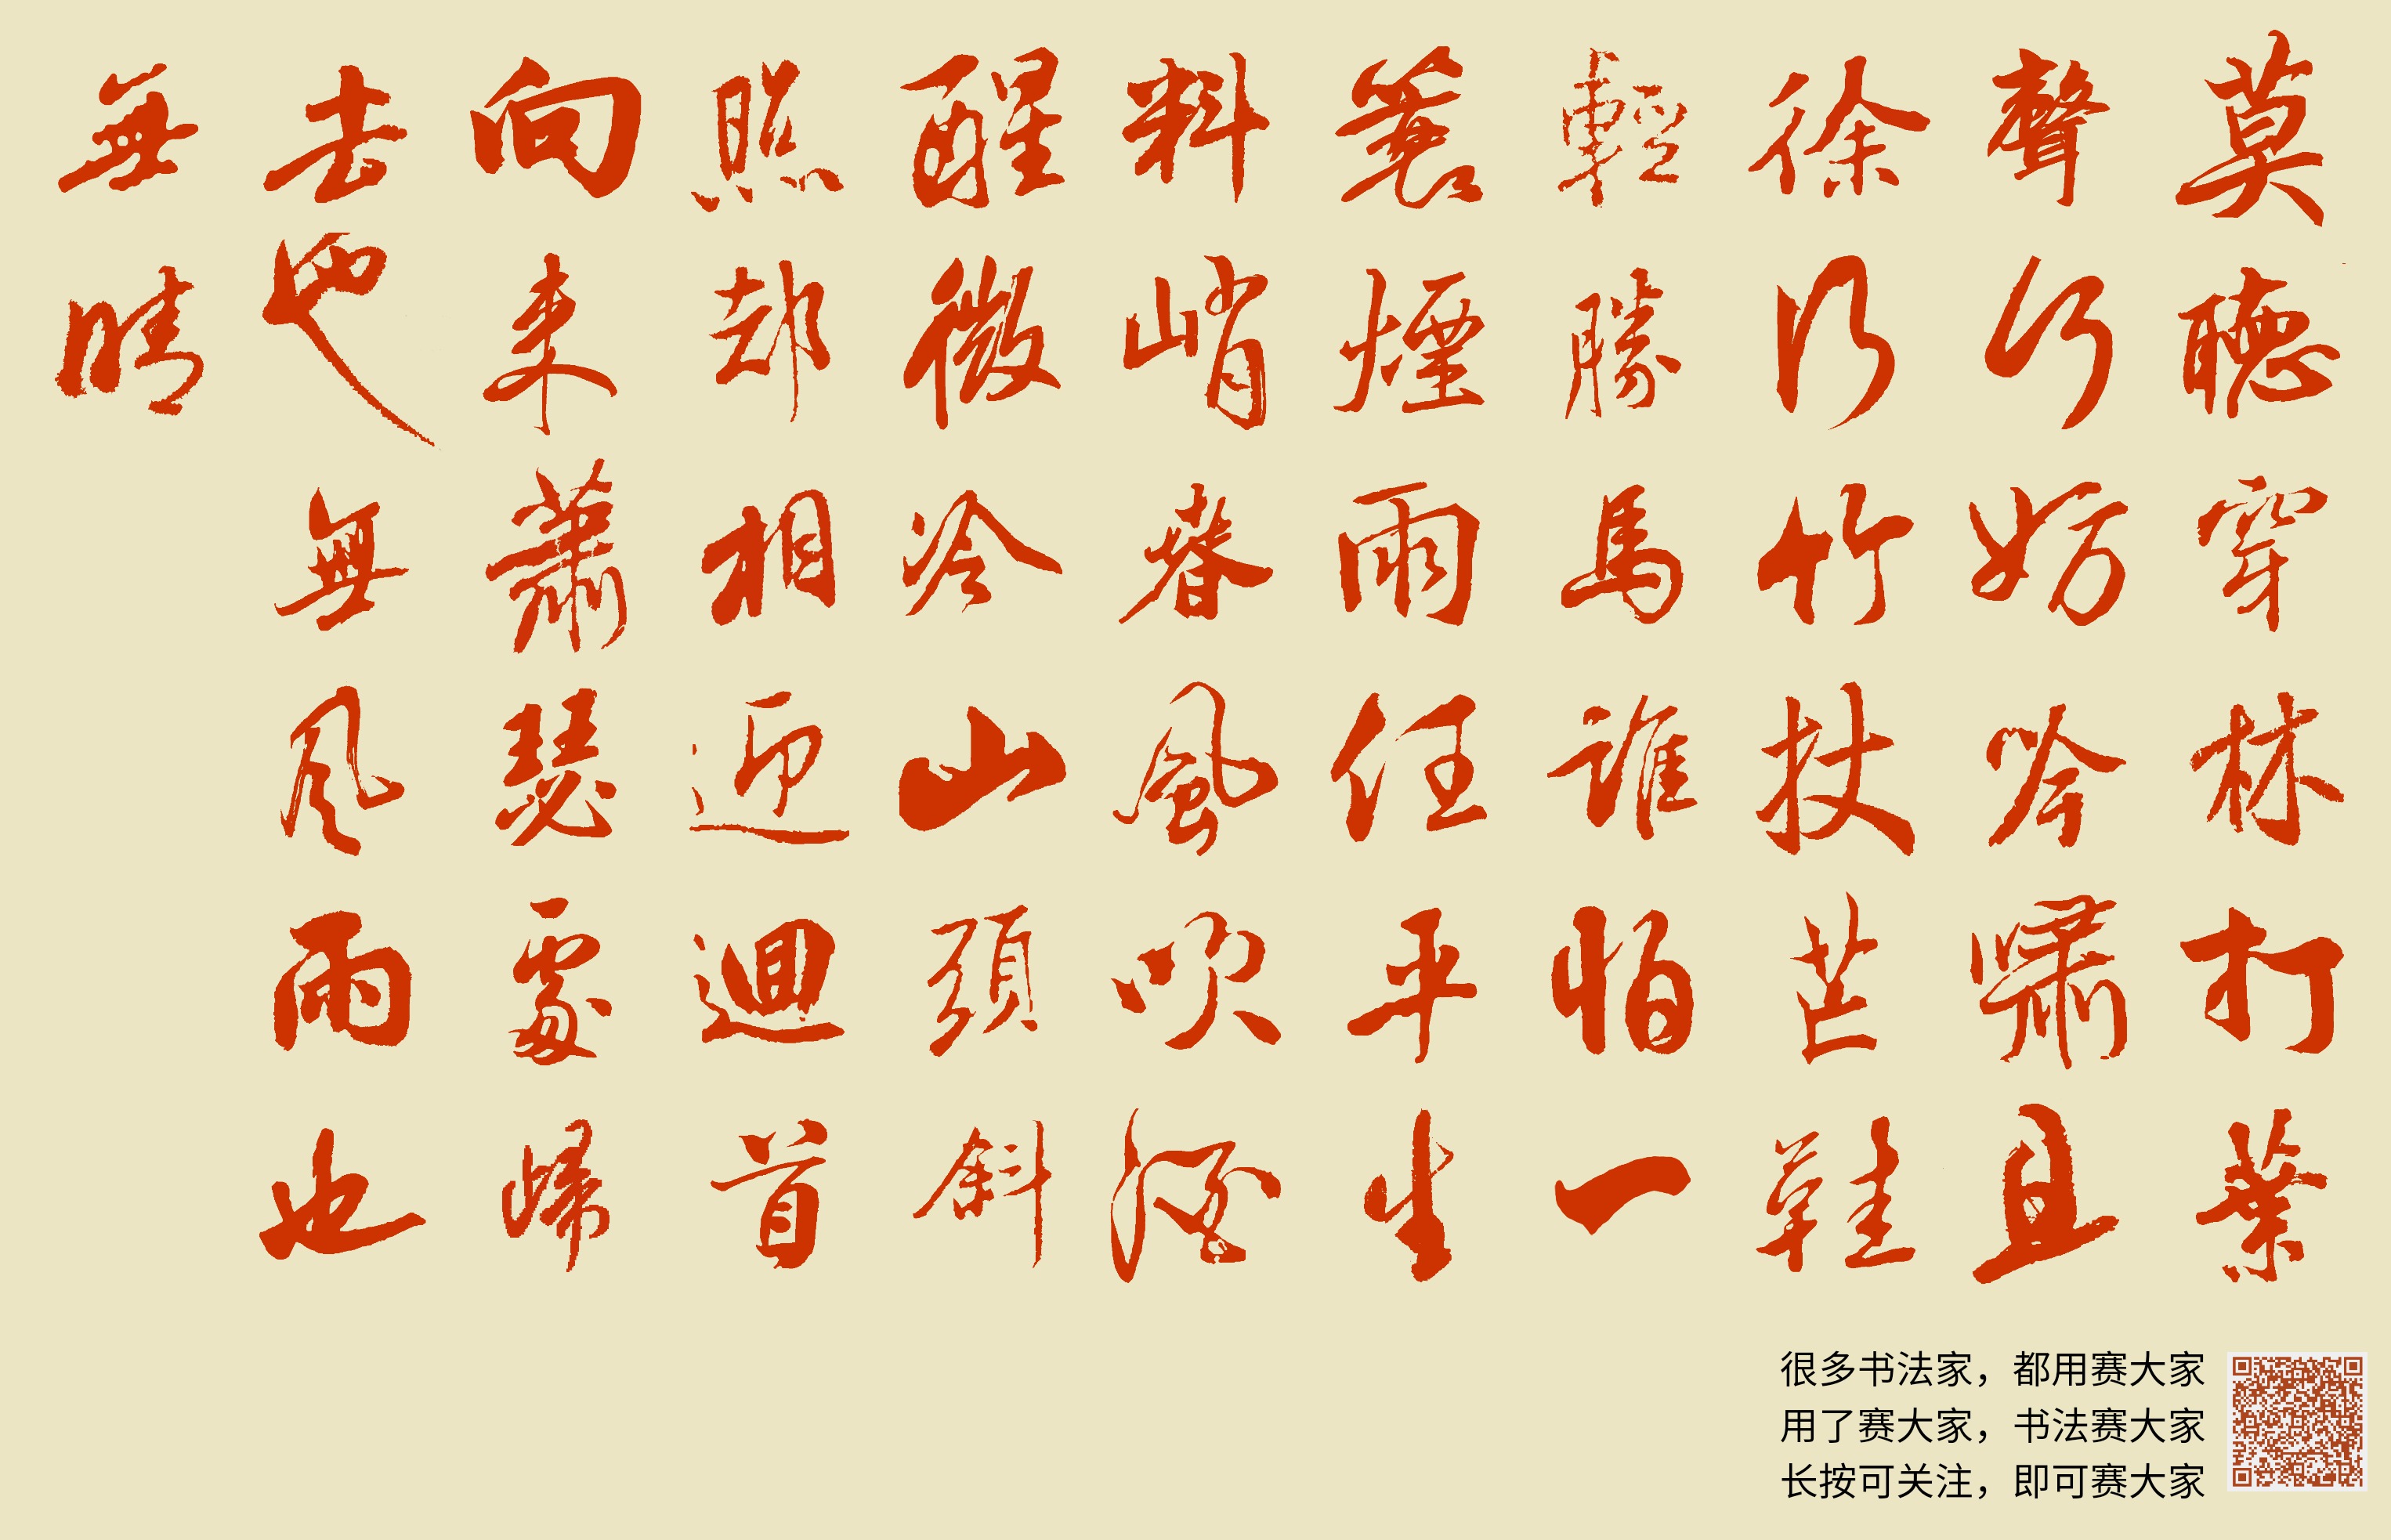 莫聽穿林打葉
聲何妨吟嘯且
徐行竹杖芒鞋
輕勝馬誰怕一
蓑煙雨任平生
料峭春風吹酒
醒微冷山頭斜
照却相迎迴首
向來蕭瑟處歸
去也無風雨也
無晴
很多书法家，都用赛大家
用了赛大家，书法赛大家
长按可关注，即可赛大家